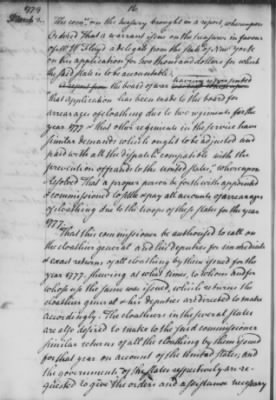 1779
March 2.
16.
The comee. on the treasury brought in a report, whereupon
Ordered That a warrant issue on the treasurer in favour
of Mr. Floyd a delegate from the State of New York
on his application for two thousand dollars for which
the said state is to be accountable.
the board of war having represented
That application has been made to the board for
arrearages of cloathing due to two regiments for the
year 1777 & that other regiments in the service have
similar demands which ought to be adjusted and
paid with all the dispatch compatible with the
prevention of frauds to the united states, whereupon
resolved That a proper person be forthwith appointed
& commissioned to settle & pay all accounts of arrearages
of cloathing due to the troops of these states for the year
1777.
That this commissioner be authorised to call on
the cloathier general and his deputies for immediate
& exact returns of all cloathing by them issued for the
year 1777. shewing at what times, to whom and for
whose use the same was issued, which returns the
cloathier general & his deputies are directed to make
accordingly. The cloathiers in the several states
are also desired to make to the said commissioner
similar returns of all the cloathing by them issued
for that year on account of the United States; and
the governments of the states respectively are re-
quested to give the orders and assistance necessary